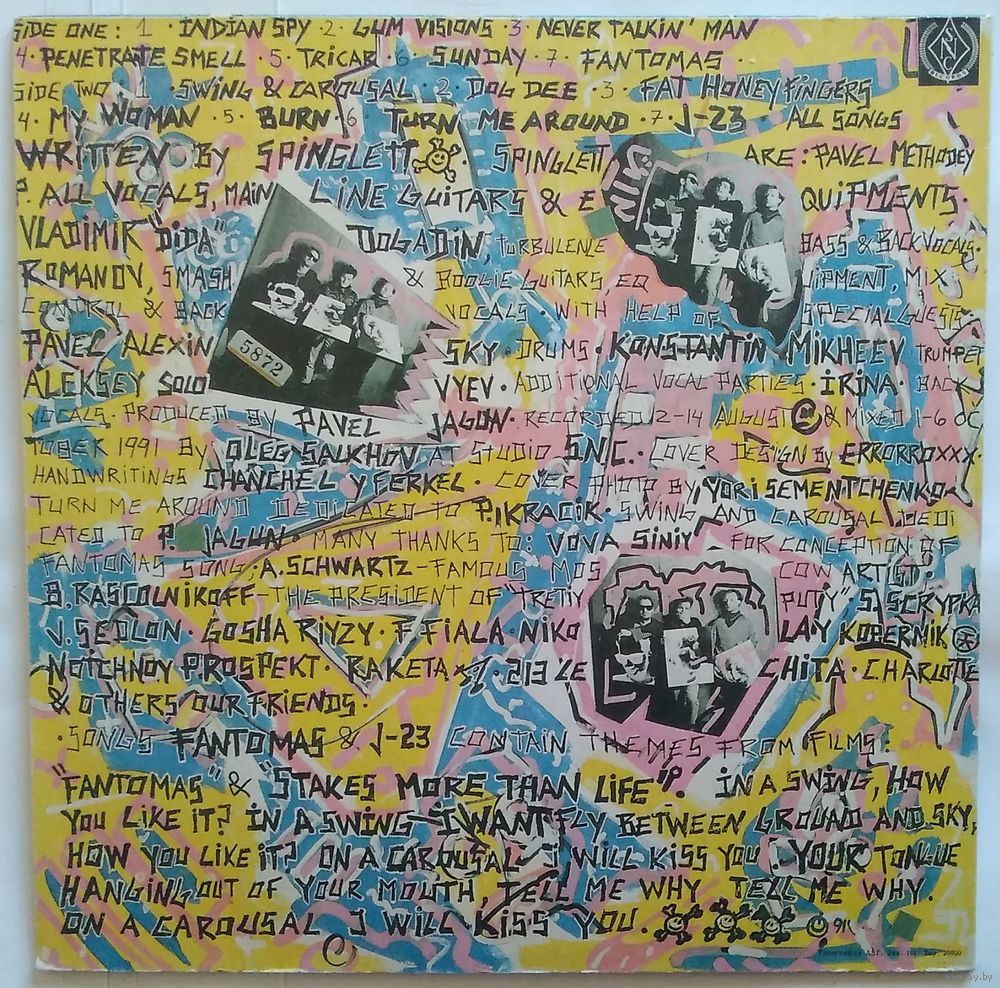 SIDE ONE: 1 · INDIAN SPY · 2 · GUM VISIONS · 3 · NEVER TALKIN' MAN
4 · PENETRATE SMELL · 5 · TRICAR · 6 · SUNDAY · 7 · FANTOMAS
SIDE TWO 1 · SWING & CAROUSAL · 2 · DOG DEE · 3 · FAT HONEY FINGERS
4 · MY WOMAN · 5 · BURN · 6 · TURN ME AROUND · 7 · J-23 · ALL SONGS
WRITTEN BY SPINGLETT · SPINGLETT ARE: PAVEL METHODEY
P. ALL VOCALS, MAIN LINE GUITARS & E QUIPMENTS ·
VLADIMIR "DIDA" DOGADIN, TURBULENCE BASS & BACK VOCALS ·
ROMANOV, SMASH & BOOGIE GUITARS EQ UIPMENT, MIX
CONTROL & BACK VOCALS · WITH HELP OF SPECIAL GUESTS
PAVEL ALEXIN SKY · DRUMS · KONSTANTIN MIKHEEV TRUMPET
ALEKSEY SOLO VYEV · ADDITIONAL VOCAL PARTIES · IRINA · BACK
VOCALS · PRODUCED BY PAVEL JAGUN · RECORDED 2-14 AUGUST & MIXED 1-6 OC
TOBER 1991 BY OLEG SALKHOV AT STUDIO S.N.C. · COVER DESIGN BY ERRORROXXX ·
HANDWRITINGS CHANCHEL Y FERKEL · COVER PHOTO BY YORI SEMENTCHENKO
TURN ME AROUND DEDICATED TO P.IKRACIK · SWING AND CAROUSAL DEDI
CATED TO P. JAGUN · MANY THANKS TO: VOVA SINIY FOR CONCEPTION OF
FANTOMAS SONG; A. SCHWARTZ - FAMOUS MOS COW ARTIST:
B. RASCOLNIKOFF - THE PRESIDENT OF "TRETIY PUTY" S. SCRYPKA
V. SEDLON · GOSHA RIYZY · F. FIALA · NIKO LAY KOPERNIK
NOTCHNOY PROSPEKT · RAKETA · % · 213 LE CHITA · CHARLOTTE
& OTHERS OUR FRIENDS ·
· SONGS FANTOMAS & J-23 CONTAIN THEMES FROM FILMS:
"FANTOMAS" & "STAKES MORE THAN LIFE". IN A SWING, HOW
YOU LIKE IT? IN A SWING I WANT FLY BETWEEN GROUND AND SKY,
HOW YOU LIKE IT? ON A CAROUSAL I WILL KISS YOU. YOUR TONGUE
HANGING OUT OF YOUR MOUTH, TELL ME WHY TELL ME WHY.
ON A CAROUSAL I WILL KISS YOU.
SNC
RECORDS
5872